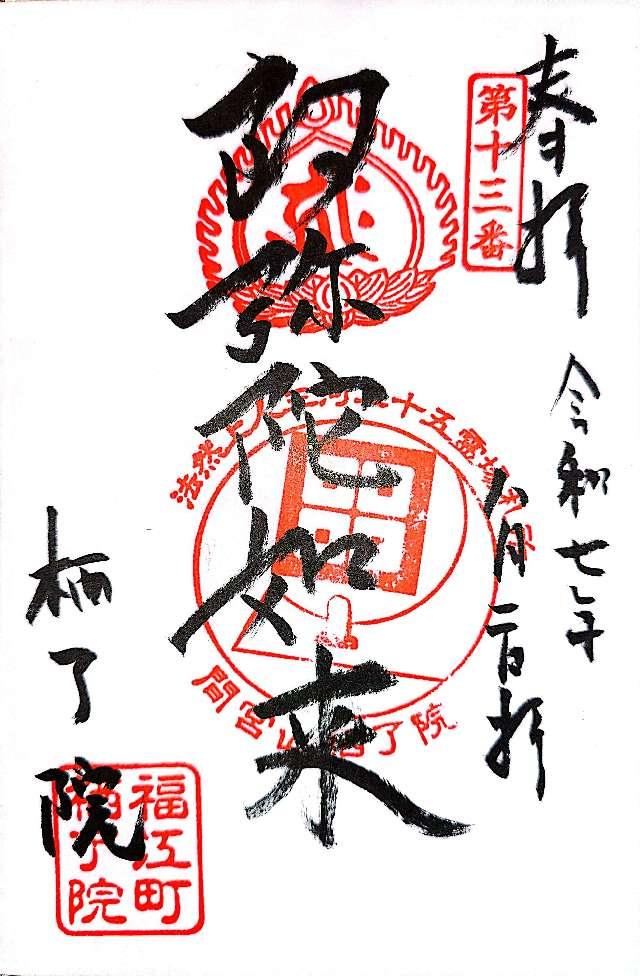 奉拝
第十三番
令和七年
八月二日拝
阿弥陀如来
法然上人三河二十五霊場
間宮山栖了院
栖了院
福江町
栖了院